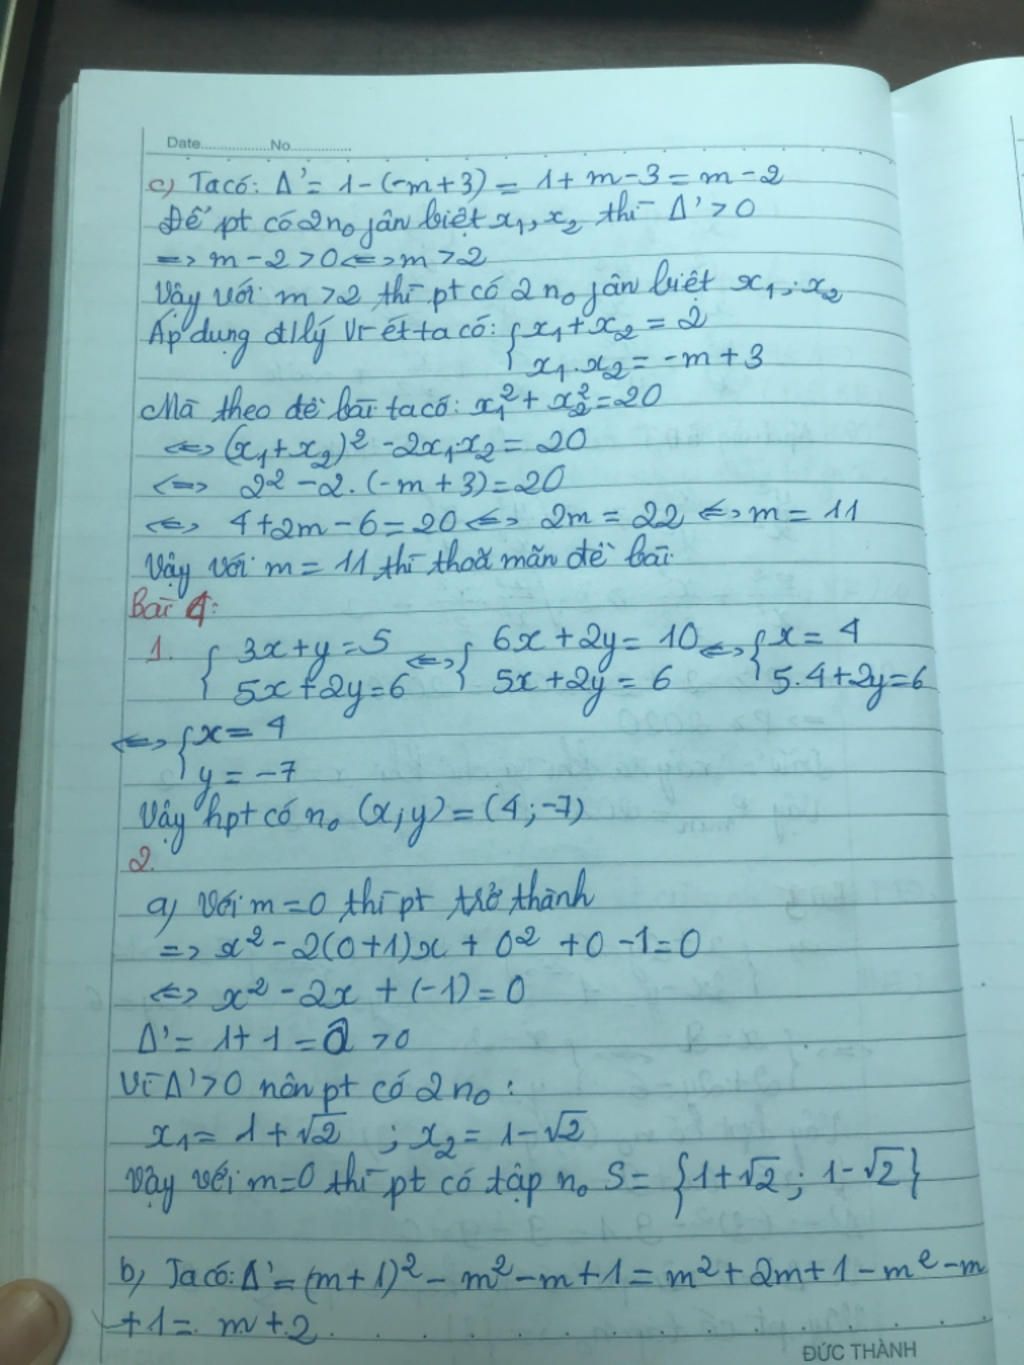 Date..................No...............
c) Ta có: Δ' = 1 - (-m + 3) = 1 + m - 3 = m - 2
Để pt có 2 n₀ fân biệt x₁, x₂ thì Δ' > 0
=> m - 2 > 0 <=> m > 2
Vậy với m > 2 thì pt có 2 n₀ fân biệt x₁; x₂
Áp dụng đlý Vi-ét ta có: { x₁ + x₂ = 2
x₁.x₂ = -m + 3
Mà theo đề bài ta có: x₁² + x₂² = 20
<=> (x₁ + x₂)² - 2x₁.x₂ = 20
<=> 2² - 2.(-m + 3) = 20
<=> 4 + 2m - 6 = 20 <=> 2m = 22 <=> m = 11
Vậy với m = 11 thì thoả mãn đề bài.
Bài 4:
1. { 3x + y = 5 <=> { 6x + 2y = 10 <=> { x = 4
5x + 2y = 6 5x + 2y = 6 5.4 + 2y = 6
<=> { x = 4
y = -7
Vậy hpt có n₀ (x; y) = (4; -7)
2.
a) Với m = 0 thì pt trở thành
=> x² - 2(0 + 1)x + 0² + 0 - 1 = 0
<=> x² - 2x + (-1) = 0
Δ' = 1 + 1 = 2 > 0
Vì Δ' > 0 nên pt có 2 n₀:
x₁ = 1 + √2 ; x₂ = 1 - √2
Vậy với m = 0 thì pt có tập n₀ S = {1 + √2 ; 1 - √2}
b) Ta có: Δ' = (m + 1)² - m² - m + 1 = m² + 2m + 1 - m² - m
+ 1 = m + 2
ĐỨC THÀNH